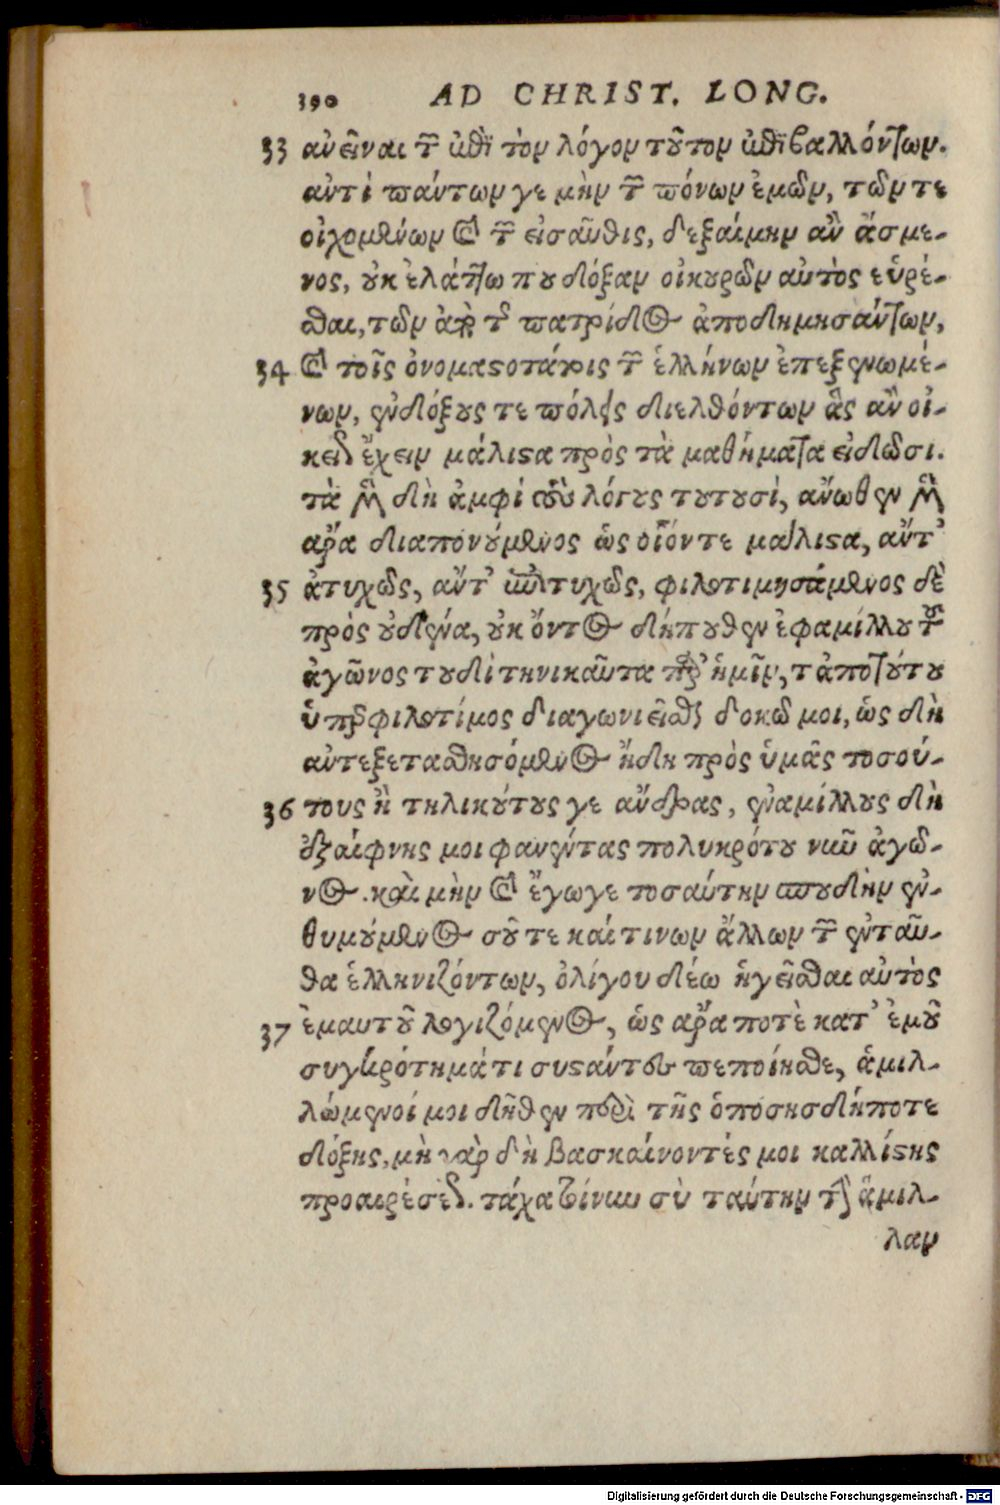 390 AD CHRIST. LONG.
33 ἀνεῖναι τῶν ἐπὶ τὸν λόγον τοῦτον ἐπιβαλλόντων.
ἀντὶ πάντων γε μὴν τῶν πόνων ἐμῶν, τῶν τε
οἰχομένων καὶ τῶν εἰσαῦθις, δεξαίμην ἂν ἄσμε-
νος, οὐκ ἐλάττω που δόξαν οἰκουρῶν αὐτὸς εὑρέ-
σθαι, τῶν ἀπὸ τῆς πατρίδος ἀποδημησάντων,
34 καὶ τοῖς ὀνομαστοτάτοις τῶν ἑλλήνων ἐπεξενωμέ-
νων, ἐνδόξους τε πόλεις διελθόντων ἃς ἂν οἰ-
κεῖν ἔχειν μάλιστα πρὸς τὰ μαθήματα εἰδῶσι.
τὰ μὲν δὴ ἀμφὶ τοὺς λόγους τουτουσὶ, ἄνωθεν μὲν
ἄρα διαπονούμενος ὡς οἷόντε μάλιστα, αὔτ’
35 ἀτυχῶς, αὔτ’ εὐτυχῶς, φιλοτιμησάμενος δὲ
πρὸς οὐδένα, οὐκ ὄντος δήπουθεν ἐφαμίλλου τοῦ
ἀγῶνος τουδὶ τηνικαῦτα παρ’ ἡμῖν, τἀποτούτου
ὑπερφιλοτίμος διαγωνιεῖσθαι δοκῶ μοι, ὡς δὴ
ἀντεξετασθησόμενος ἤδη πρὸς ὑμᾶς τοσού-
36 τους ἢ τηλικούτους γε ἄνδρας, ἐναμίλλους δὴ
ἐξαίφνης μοι φανέντας πολυκρότου νῦν ἀγῶ-
νος. καὶ μὴν καὶ ἔγωγε τοσαύτην σπουδὴν ἐν-
θυμούμενος σοῦ τε καί τινων ἄλλων τῶν ἐνταῦ-
θα ἑλληνιζόντων, ὀλίγου δέω ἡγεῖσθαι αὐτὸς
37 ἐμαυτοῦ λογιζόμενος, ὡς ἄρα ποτὲ κατ’ ἐμοῦ
συγκρότημά τι συστάντες πεποίησθε, ἁμιλ-
λώμενοί μοι δῆθεν περὶ τῆς ὁποσησδήποτε
δόξης, μὴ γὰρ δὴ βασκαίνοντές μοι καλλίστης
προαιρέσεως. τάχα τοίνυν σὺ ταύτην τὴν ἅμιλ-
λαν
Digitalisierung gefördert durch die Deutsche Forschungsgemeinschaft - DFG